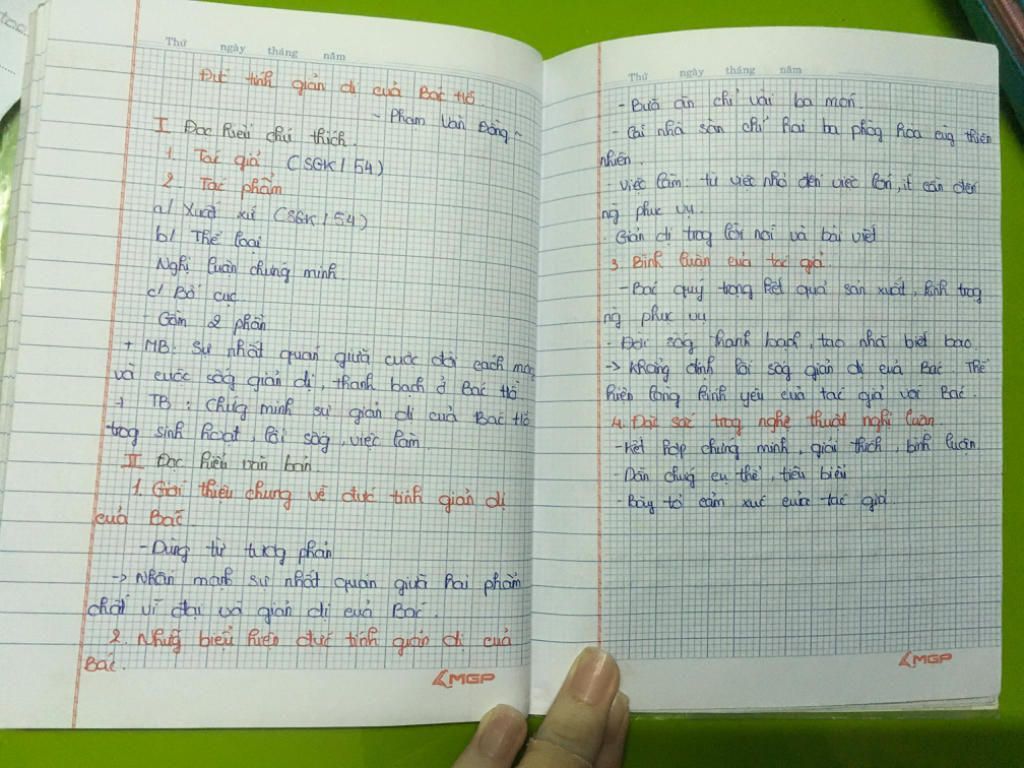 Thứ ngày tháng năm
Đức tính giản dị của Bác Hồ
~ Phạm Văn Đồng ~
I Đọc hiểu chú thích.
1. Tác giả (SGK/54)
2. Tác phẩm
a/ Xuất xứ (SGK/54)
b/ Thể loại
Nghị luận chứng minh
c/ Bố cục
Gồm 2 phần
+ MB: Sự nhất quán giữa cuộc đời cách mạng
và cuộc sốg giản dị, thanh bạch ở Bác Hồ
+ TB: Chứg minh sự giản dị của Bác Hồ
trog sinh hoạt, lối sốg, việc làm
II Đọc hiểu văn bản
1. Giới thiệu chung về đức tính giản dị
của Bác
- Dùng từ tươg phản
-> Nhấn mạnh sự nhất quán giữa hai phẩm
chất vĩ đại và giản dị của Bác.
2. Nhữg biểu hiện đức tính giản dị của
Bác.
MGP
Thứ ngày tháng năm
- Bữa ăn chỉ vài ba món.
- Cái nhà sàn chỉ hai ba phòg hòa cùg thiên
nhiên.
- Việc làm từ việc nhỏ đến việc lớn, ít cần đến
ng phục vụ.
- Giản dị trog lời nói và bài viết
3. Bình luận của tác giả.
- Bác quý trọng kết quả sản xuất, kính trọg
ng phục vụ
- Đời sốg thanh bạch, tao nhã biết bao.
-> Khẳng định lối sốg giản dị của Bác. Thể
hiện lòng kính yêu của tác giả với Bác.
4. Đặc sắc trog nghệ thuật nghị luận
- Kết hợp chứng minh, giải thích, bình luận
- Dẫn chứg cụ thể, tiêu biểu
- Bày tỏ cảm xúc của tác giả.
MGP